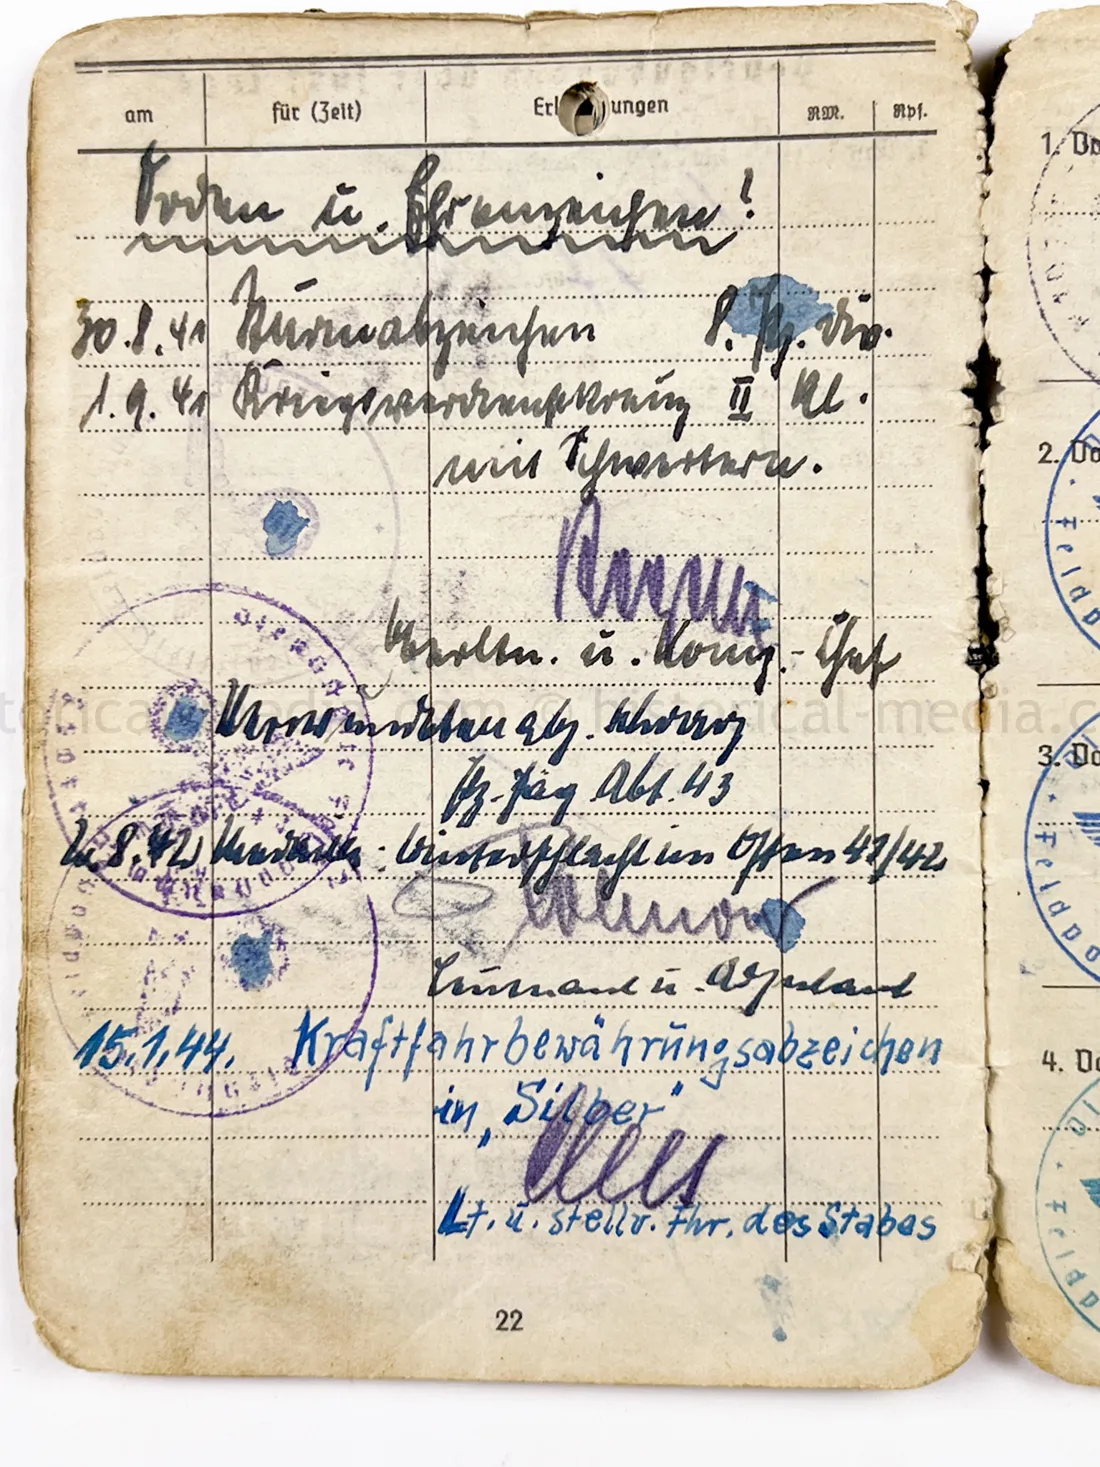 am für (Zeit) Erl ungen RM. Rpf.
Orden u. Ehrenzeichen!
30.8.41 Sturmabzeichen 8. Pz. Div.
1.9.41 Kriegsverdienstkreuz II Kl.
mit Schwertern.
Oberltn. u. Komp.-Chef
Verwundetenabz. schwarz
Pz. Jäg Abt. 43
8.42 Medaille: Winterschlacht im Osten 41/42
Leutnant u. Adjutant
15.1.44. Kraftfahrbewährungsabzeichen
in „Silber"
Lt. u. stellv. Fhr. des Stabes
22
1. Do
2. Do
Feldp
3. Do
Feldpo
4. Do
Feldp
historical-media.c